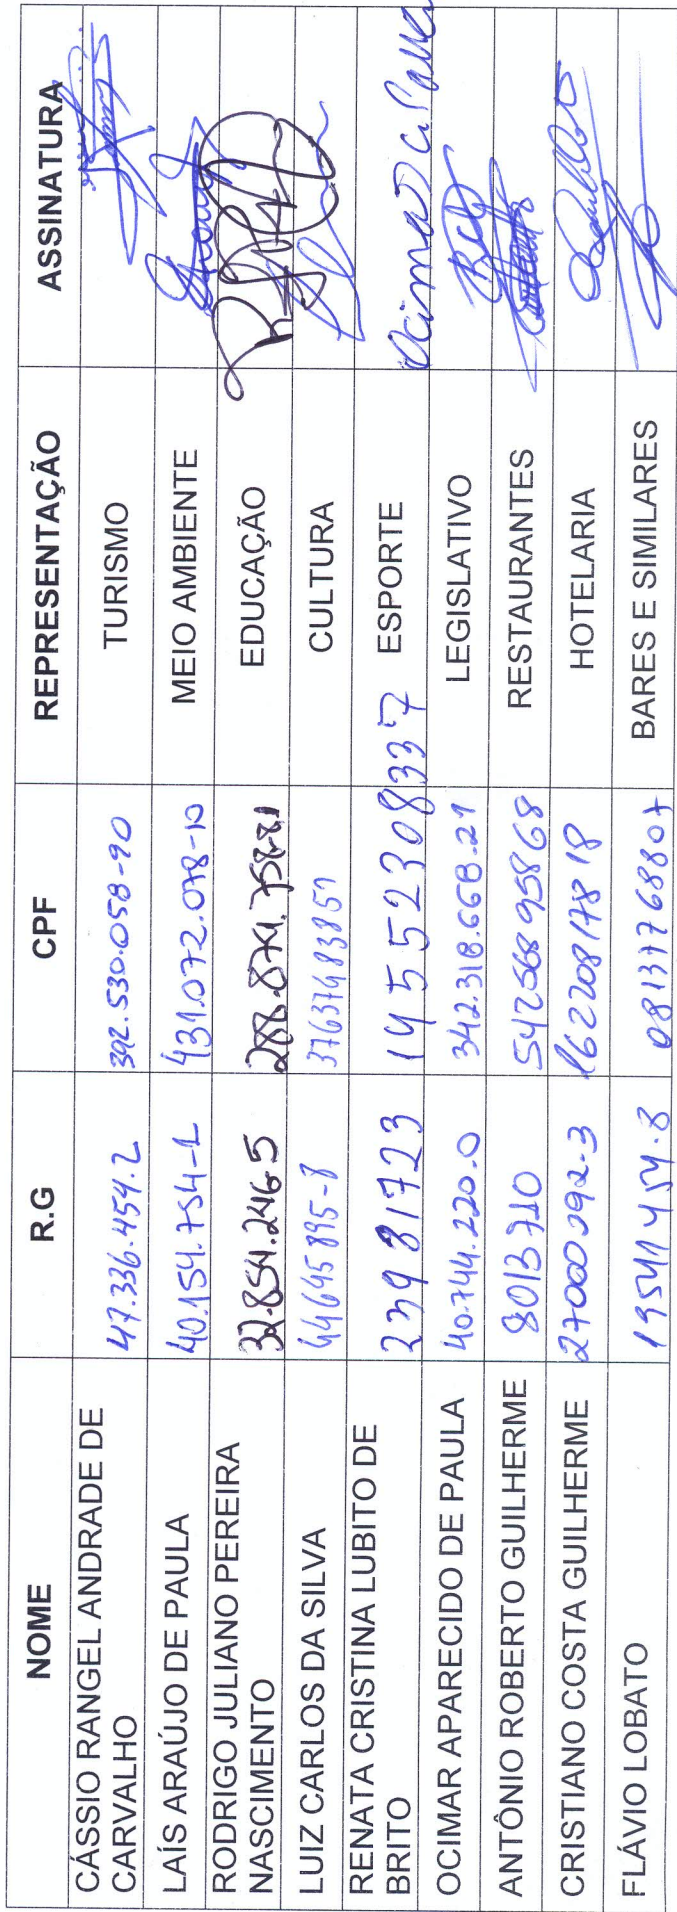 NOME R.G CPF REPRESENTAÇÃO ASSINATURA
CÁSSIO RANGEL ANDRADE DE
CARVALHO 47.336.454.2 392.530.058-90 TURISMO
LAÍS ARAÚJO DE PAULA 40.154.754-1 431.072.078-10 MEIO AMBIENTE
RODRIGO JULIANO PEREIRA
NASCIMENTO 32.854.246-5 EDUCAÇÃO
LUIZ CARLOS DA SILVA CULTURA
RENATA CRISTINA LUBITO DE
BRITO 23981723 145552308337 ESPORTE
OCIMAR APARECIDO DE PAULA 40.744.220.0 342.318.668-21 LEGISLATIVO Ocimar
ANTÔNIO ROBERTO GUILHERME 54256895868 RESTAURANTES
CRISTIANO COSTA GUILHERME 27000092-3 16220817818 HOTELARIA
FLÁVIO LOBATO BARES E SIMILARES